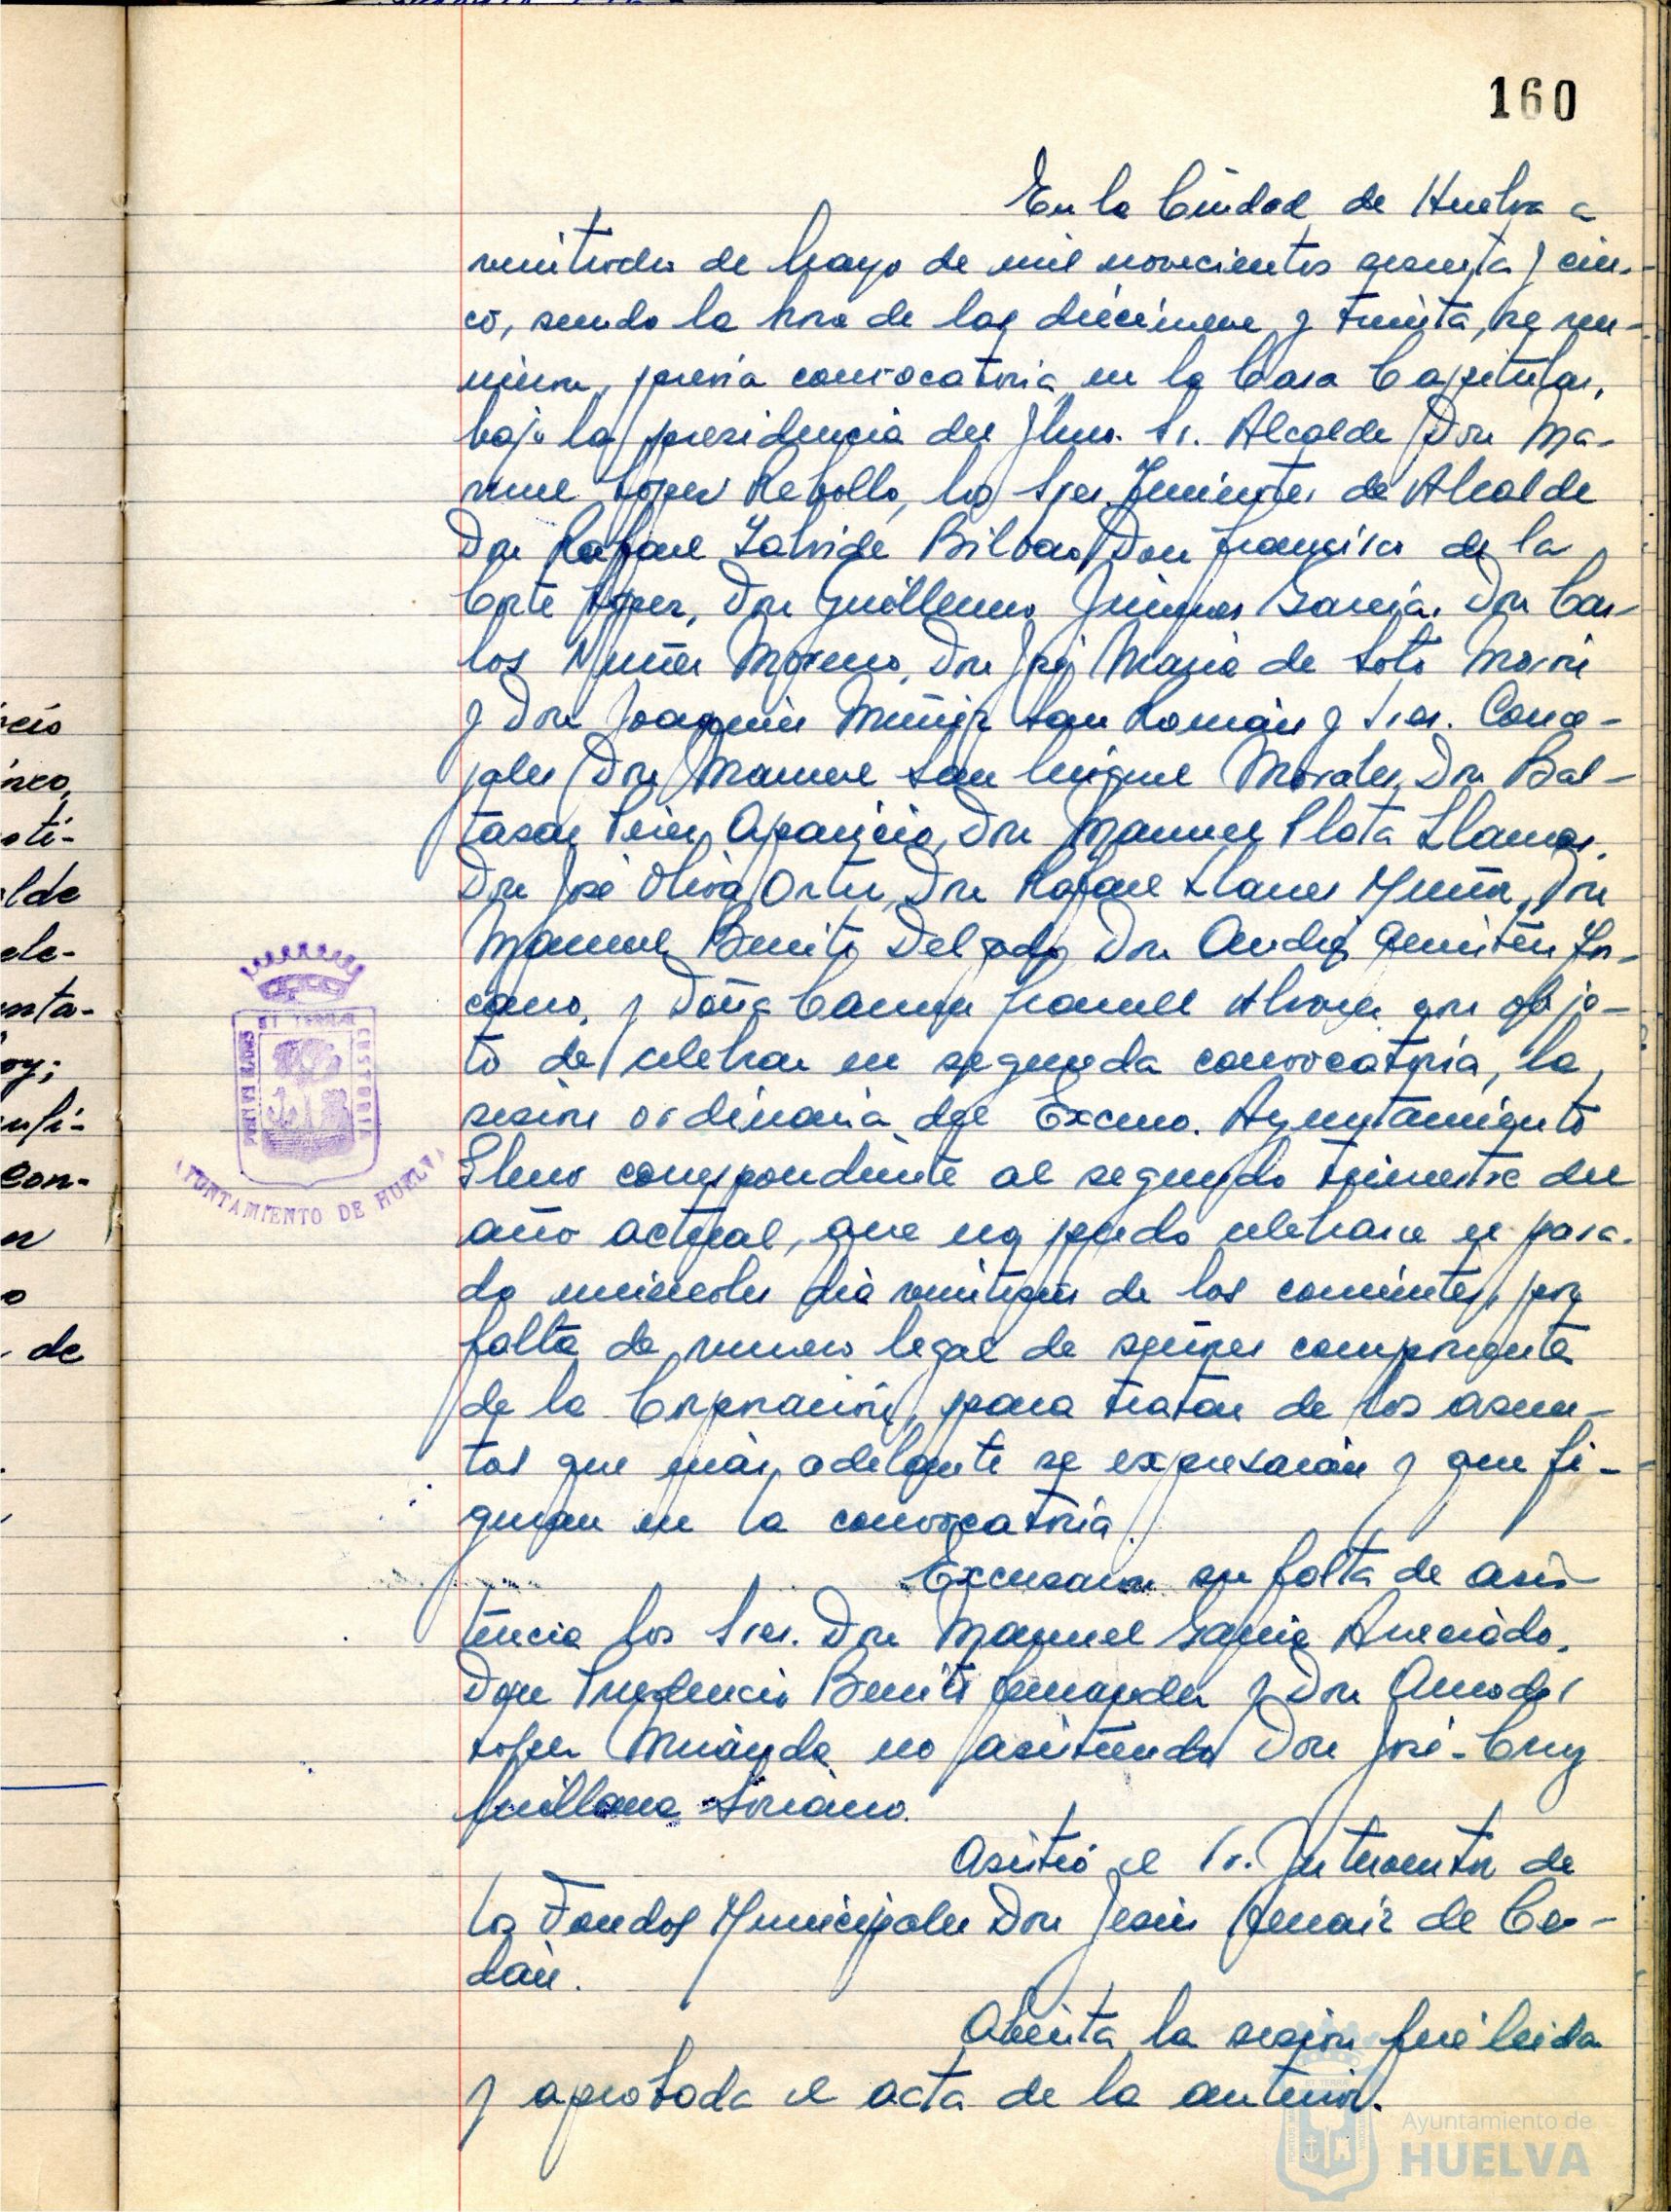 160
En la Ciudad de Huelva a
veintiocho de Mayo de mil novecientos sesenta y cin-
co, siendo la hora de las diecinueve y treinta, se reu-
nieron, previa convocatoria en la Casa Capitular,
bajo la presidencia del Ilmo. Sr. Alcalde Don Ma-
nuel López Rebollo, los Sres. Tenientes de Alcalde
Don Rafael Zalvide Bilbao, Don Francisco de la
Corte López, Don Guillermo Jiménez García, Don Car-
los Núñez Moreno, Don José María de Soto Morón
y Don Joaquín Muñiz San Román y Sres. Conce-
jales Don Manuel San Miguel Morales, Don Bal-
tasar Pérez Aparicio, Don Manuel Plata Llamas,
Don José Oliva Ortiz, Don Rafael Llanes Muñoz, Don
Manuel Benito Delgado, Don Andrés
cano, y Doña Carmen Alvarez con obje-
to de celebrar en segunda convocatoria, la
sesión ordinaria del Excmo. Ayuntamiento
Pleno correspondiente al segundo trimestre del
año actual, que no pudo celebrarse el pasa-
do miércoles día veintiséis de los corrientes, por
falta de número legal de señores componentes
de la Corporación, para tratar de los asun-
tos que más adelante se expresarán y que fi-
guran en la convocatoria.
Excusaron su falta de asis-
tencia los Sres. Don Manuel García Anunciado,
Don Prudencio Benito Fernández y Don Amador
López Miranda no asistiendo Don José-Cruz
Quillana Soriano.
Asistió el Sr. Interventor de
los Fondos Municipales Don Jesús Arnaiz de Ce-
lain.
Abierta la sesión fué leida
y aprobada el acta de la anterior.
PORTUS MARIS
ET TERRAE
CUSTODIA
AYUNTAMIENTO DE HUELVA
Ayuntamiento de
HUELVA
lde
ele-
nta-
oy;
con-
de